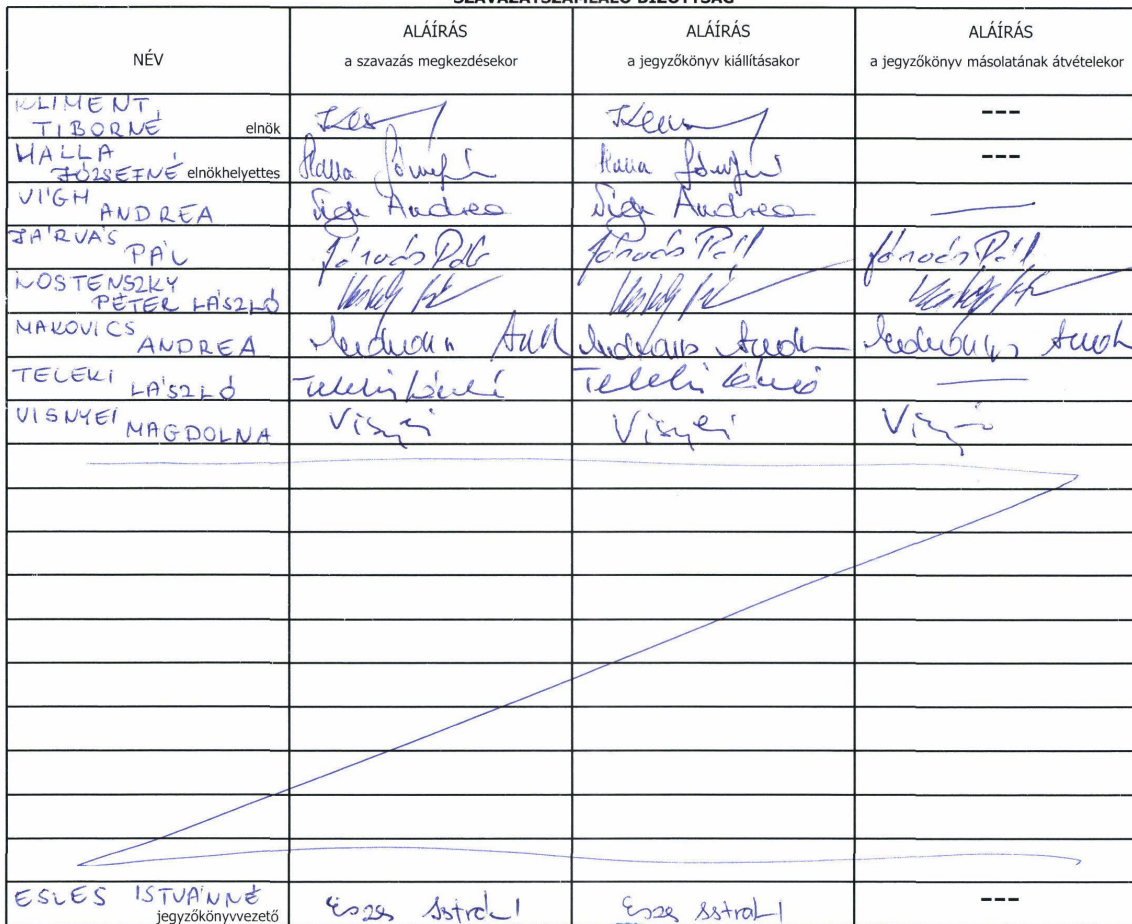 SZAVAZATSZÁMLÁLÓ BIZOTTSÁG
NÉV
ALÁÍRÁS
a szavazás megkezdésekor
ALÁÍRÁS
a jegyzőkönyv kiállításakor
ALÁÍRÁS
a jegyzőkönyv másolatának átvételekor
KLIMENT
TIBORNÉ elnök ---
HALLA
JÓZSEFNÉ elnökhelyettes Halla Józsefné Halla Józsefné ---
VÍGH
ANDREA Vigh Andrea Vigh Andrea —
JÁRVÁS
PÁL Járvás Pál Járvás Pál Járvás Pál
KOSTENSZKY
PÉTER LÁSZLÓ
MAKOVICS
ANDREA
TELEKI
LÁSZLÓ Teleki László Teleki László —
VISNYEI
MAGDOLNA Visnyei Visnyei
ISTVÁNNÉ
jegyzőkönyvvezető ---